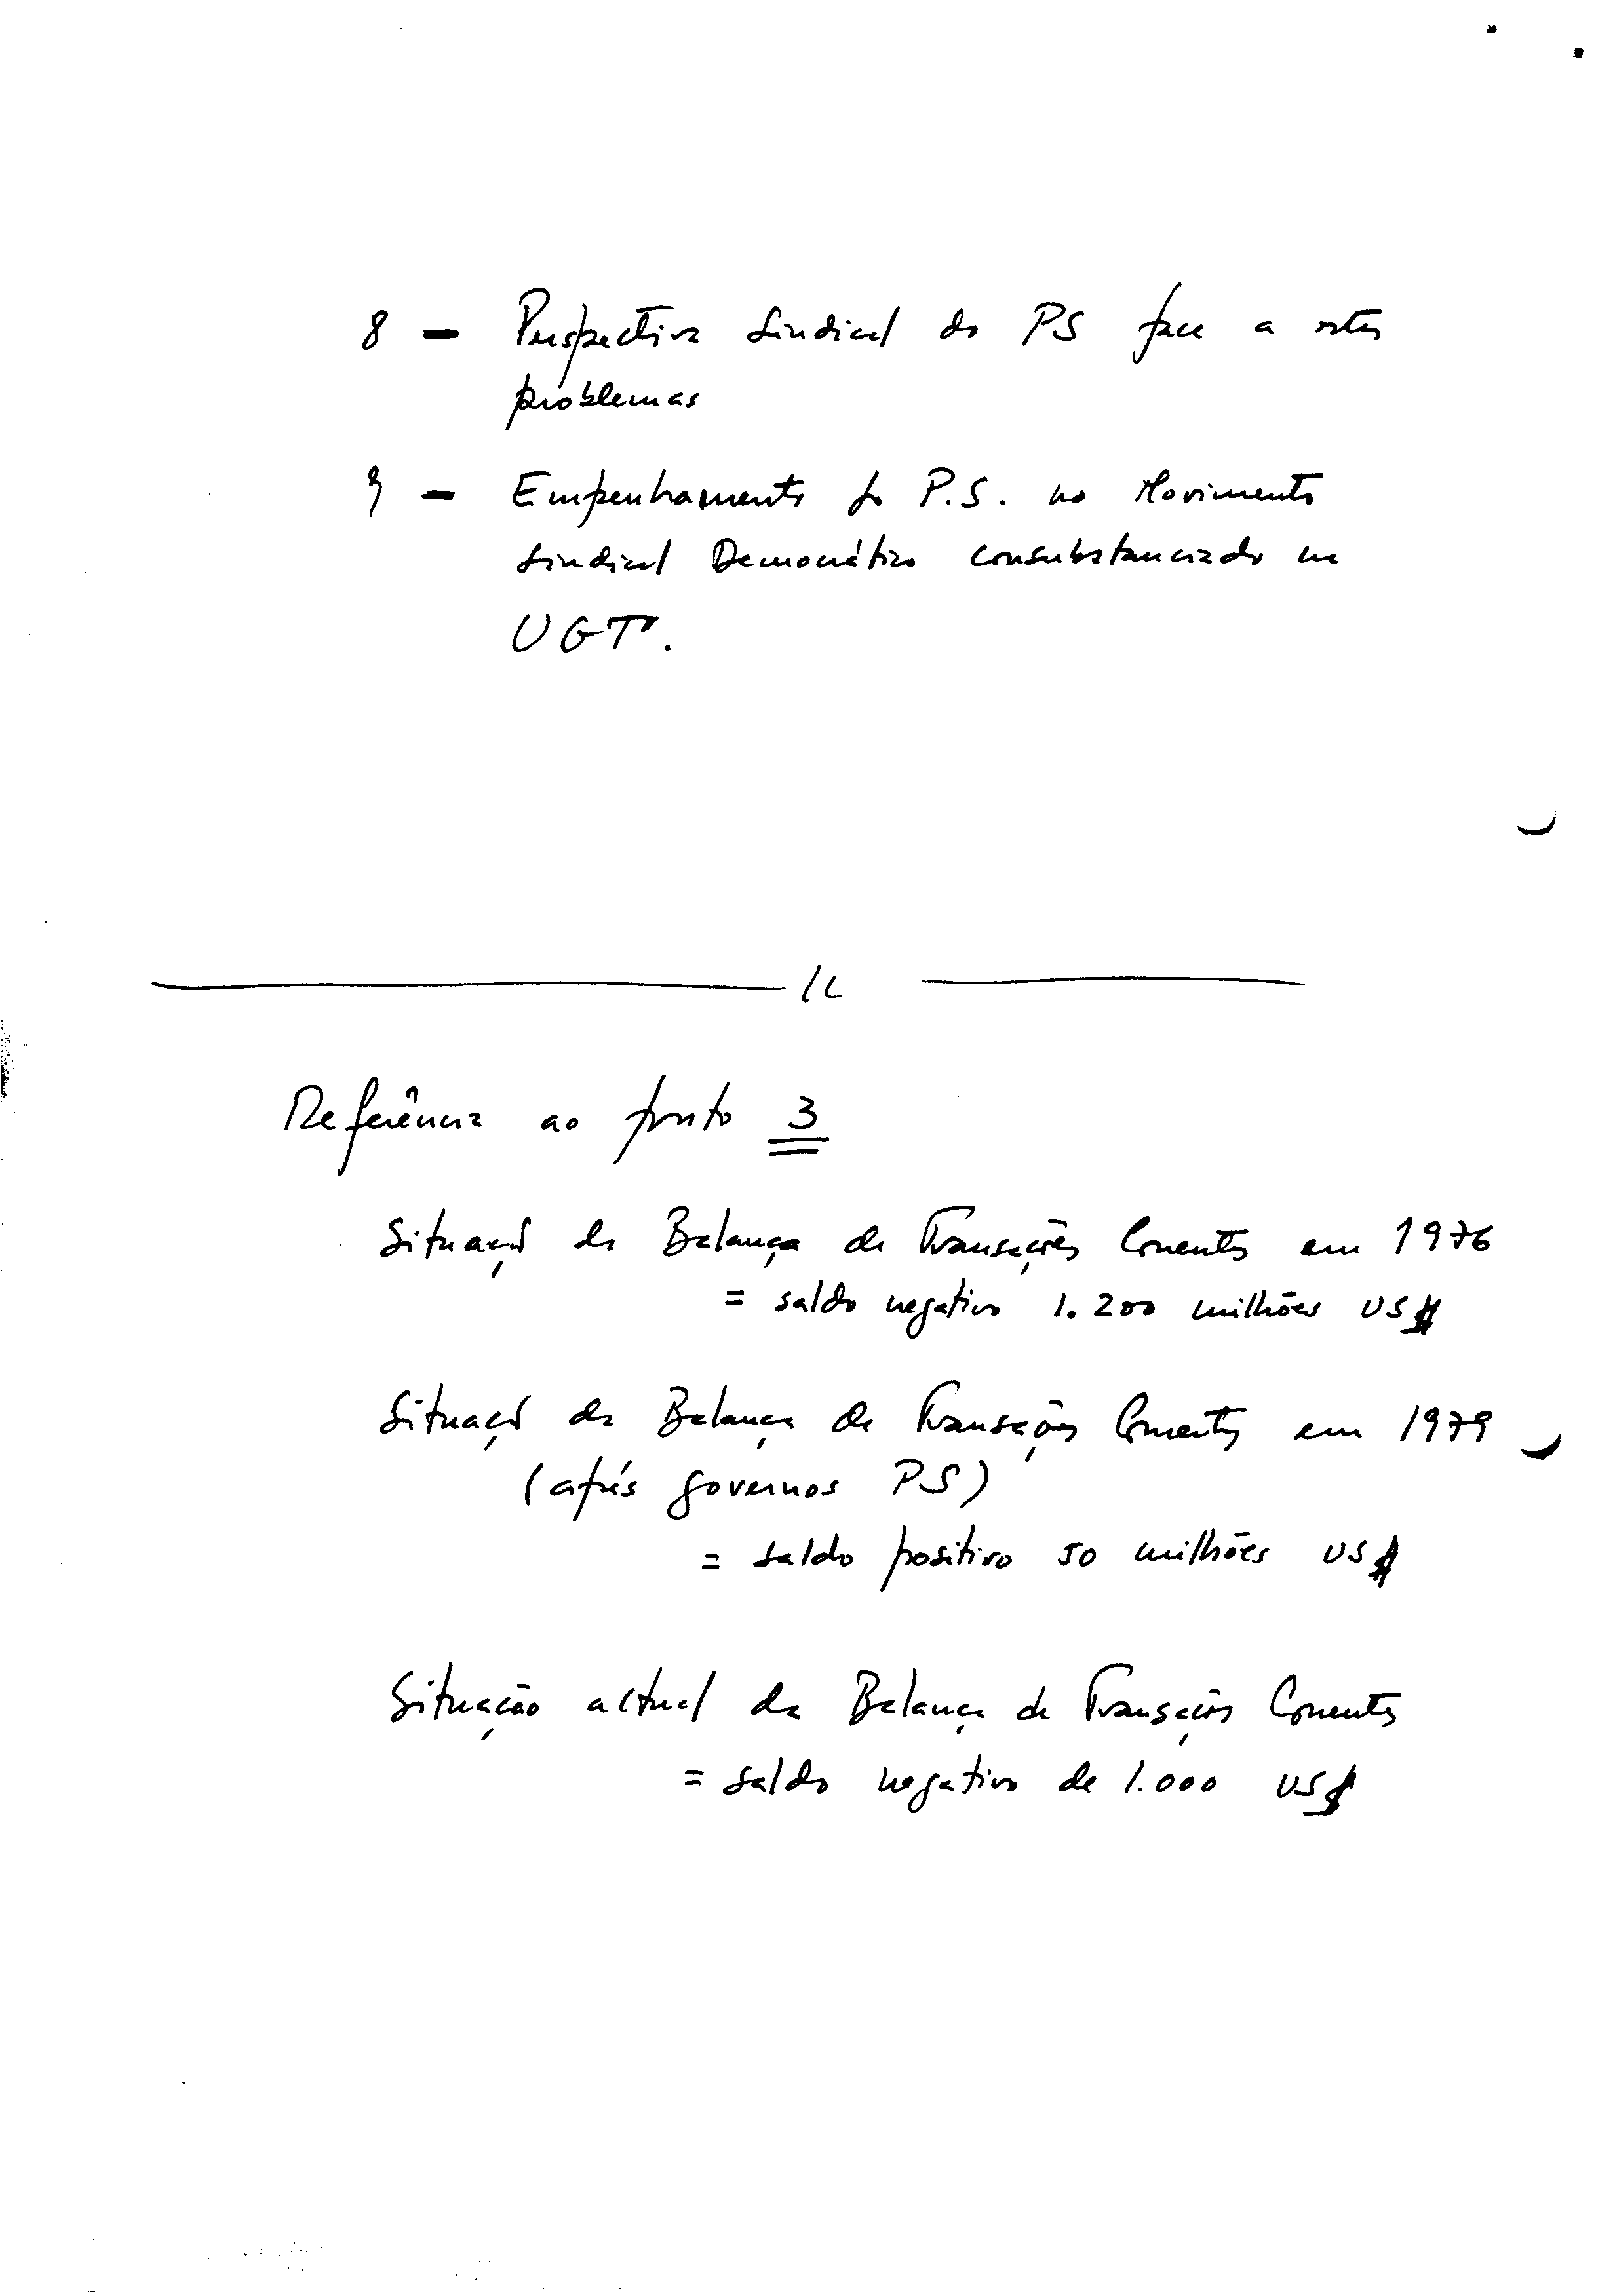 8 - Perspectiva Sindical do PS face a estes
problemas
9 - Empenhamento do P.S. no Movimento
Sindical Democrático consubstanciado na
UGT.
Referência ao ponto 3
Situação da Balança de Transações Correntes em 1976
= saldo negativo 1.200 milhões US$
Situação da Balança de Transações Correntes em 1979
(após governos PS)
= saldo positivo 50 milhões US$
Situação actual da Balança de Transações Correntes
= saldo negativo de 1.000 US$